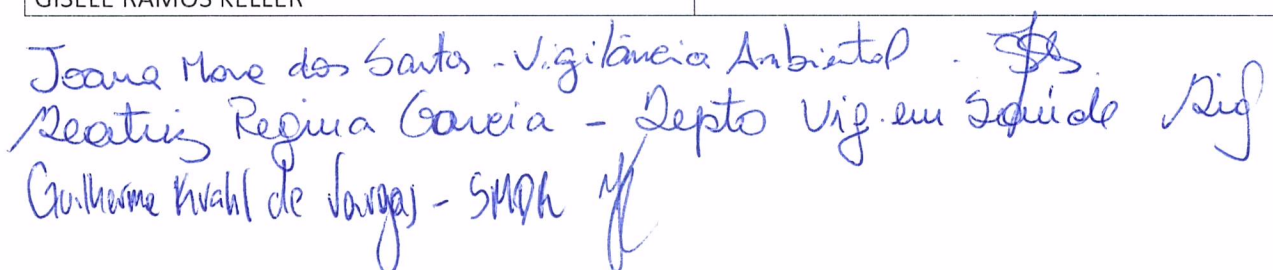 GISELE RAMOS KELLER
Joana Mora dos Santos - Vigilância Ambiental
Beatriz Regina Garcia - Depto Vig. em Saúde
Guilherme Krahl de Vargas - SMDR